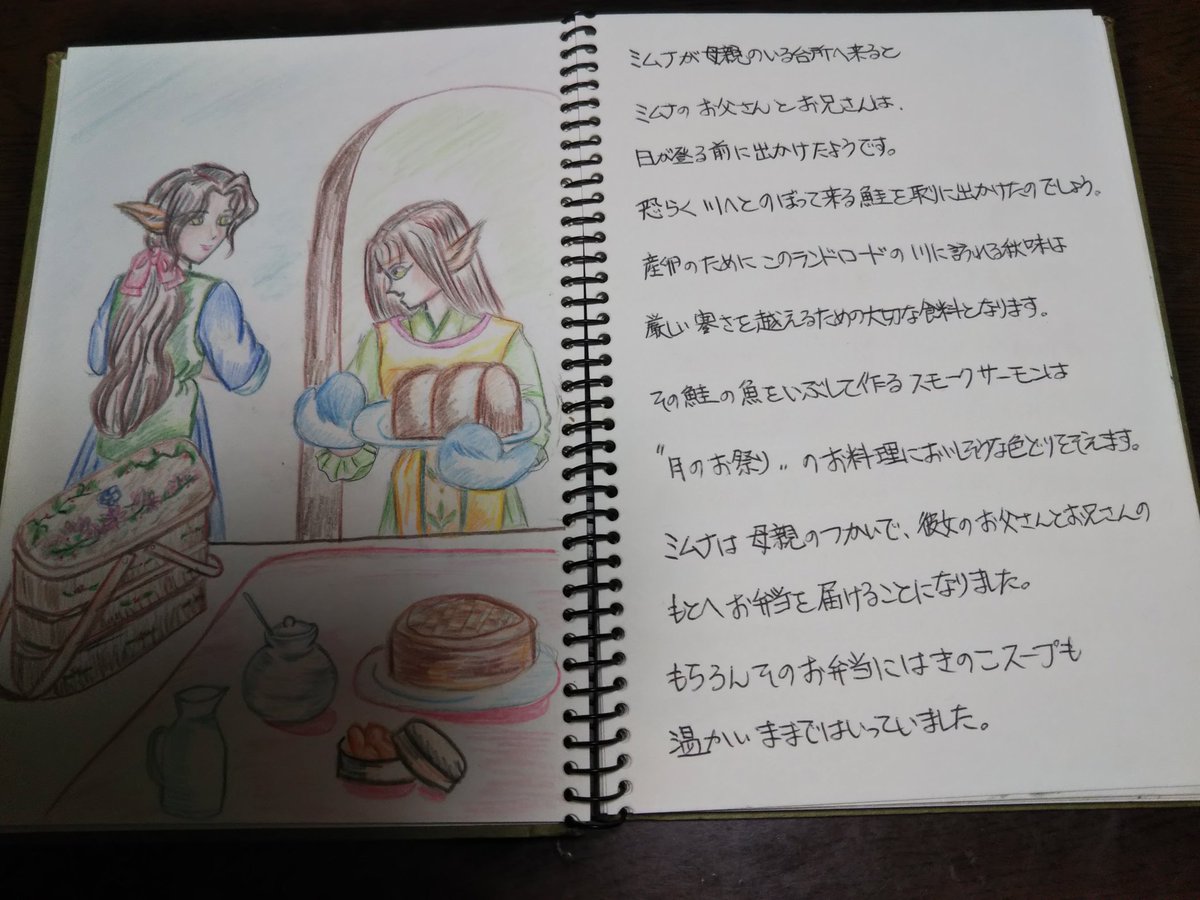 ミムナが母親のいる台所へ来ると
ミムナのお父さんとお兄さんは、
日が登る前に出かけたようです。
恐らく川へとのぼって来る鮭を取りに出かけたのでしょう。
産卵のためにこのランドロードの川に訪れる秋味は
厳しい寒さを越えるための大切な食料となります。
その鮭の魚をいぶして作るスモークサーモンは
"月のお祭り"のお料理においしそうな色どりをそえます。
ミムナは母親のつかいで、彼女のお父さんとお兄さんの
もとへお弁当を届けることになりました。
もちろんそのお弁当にはきのこスープも
温かいままではいっていました。